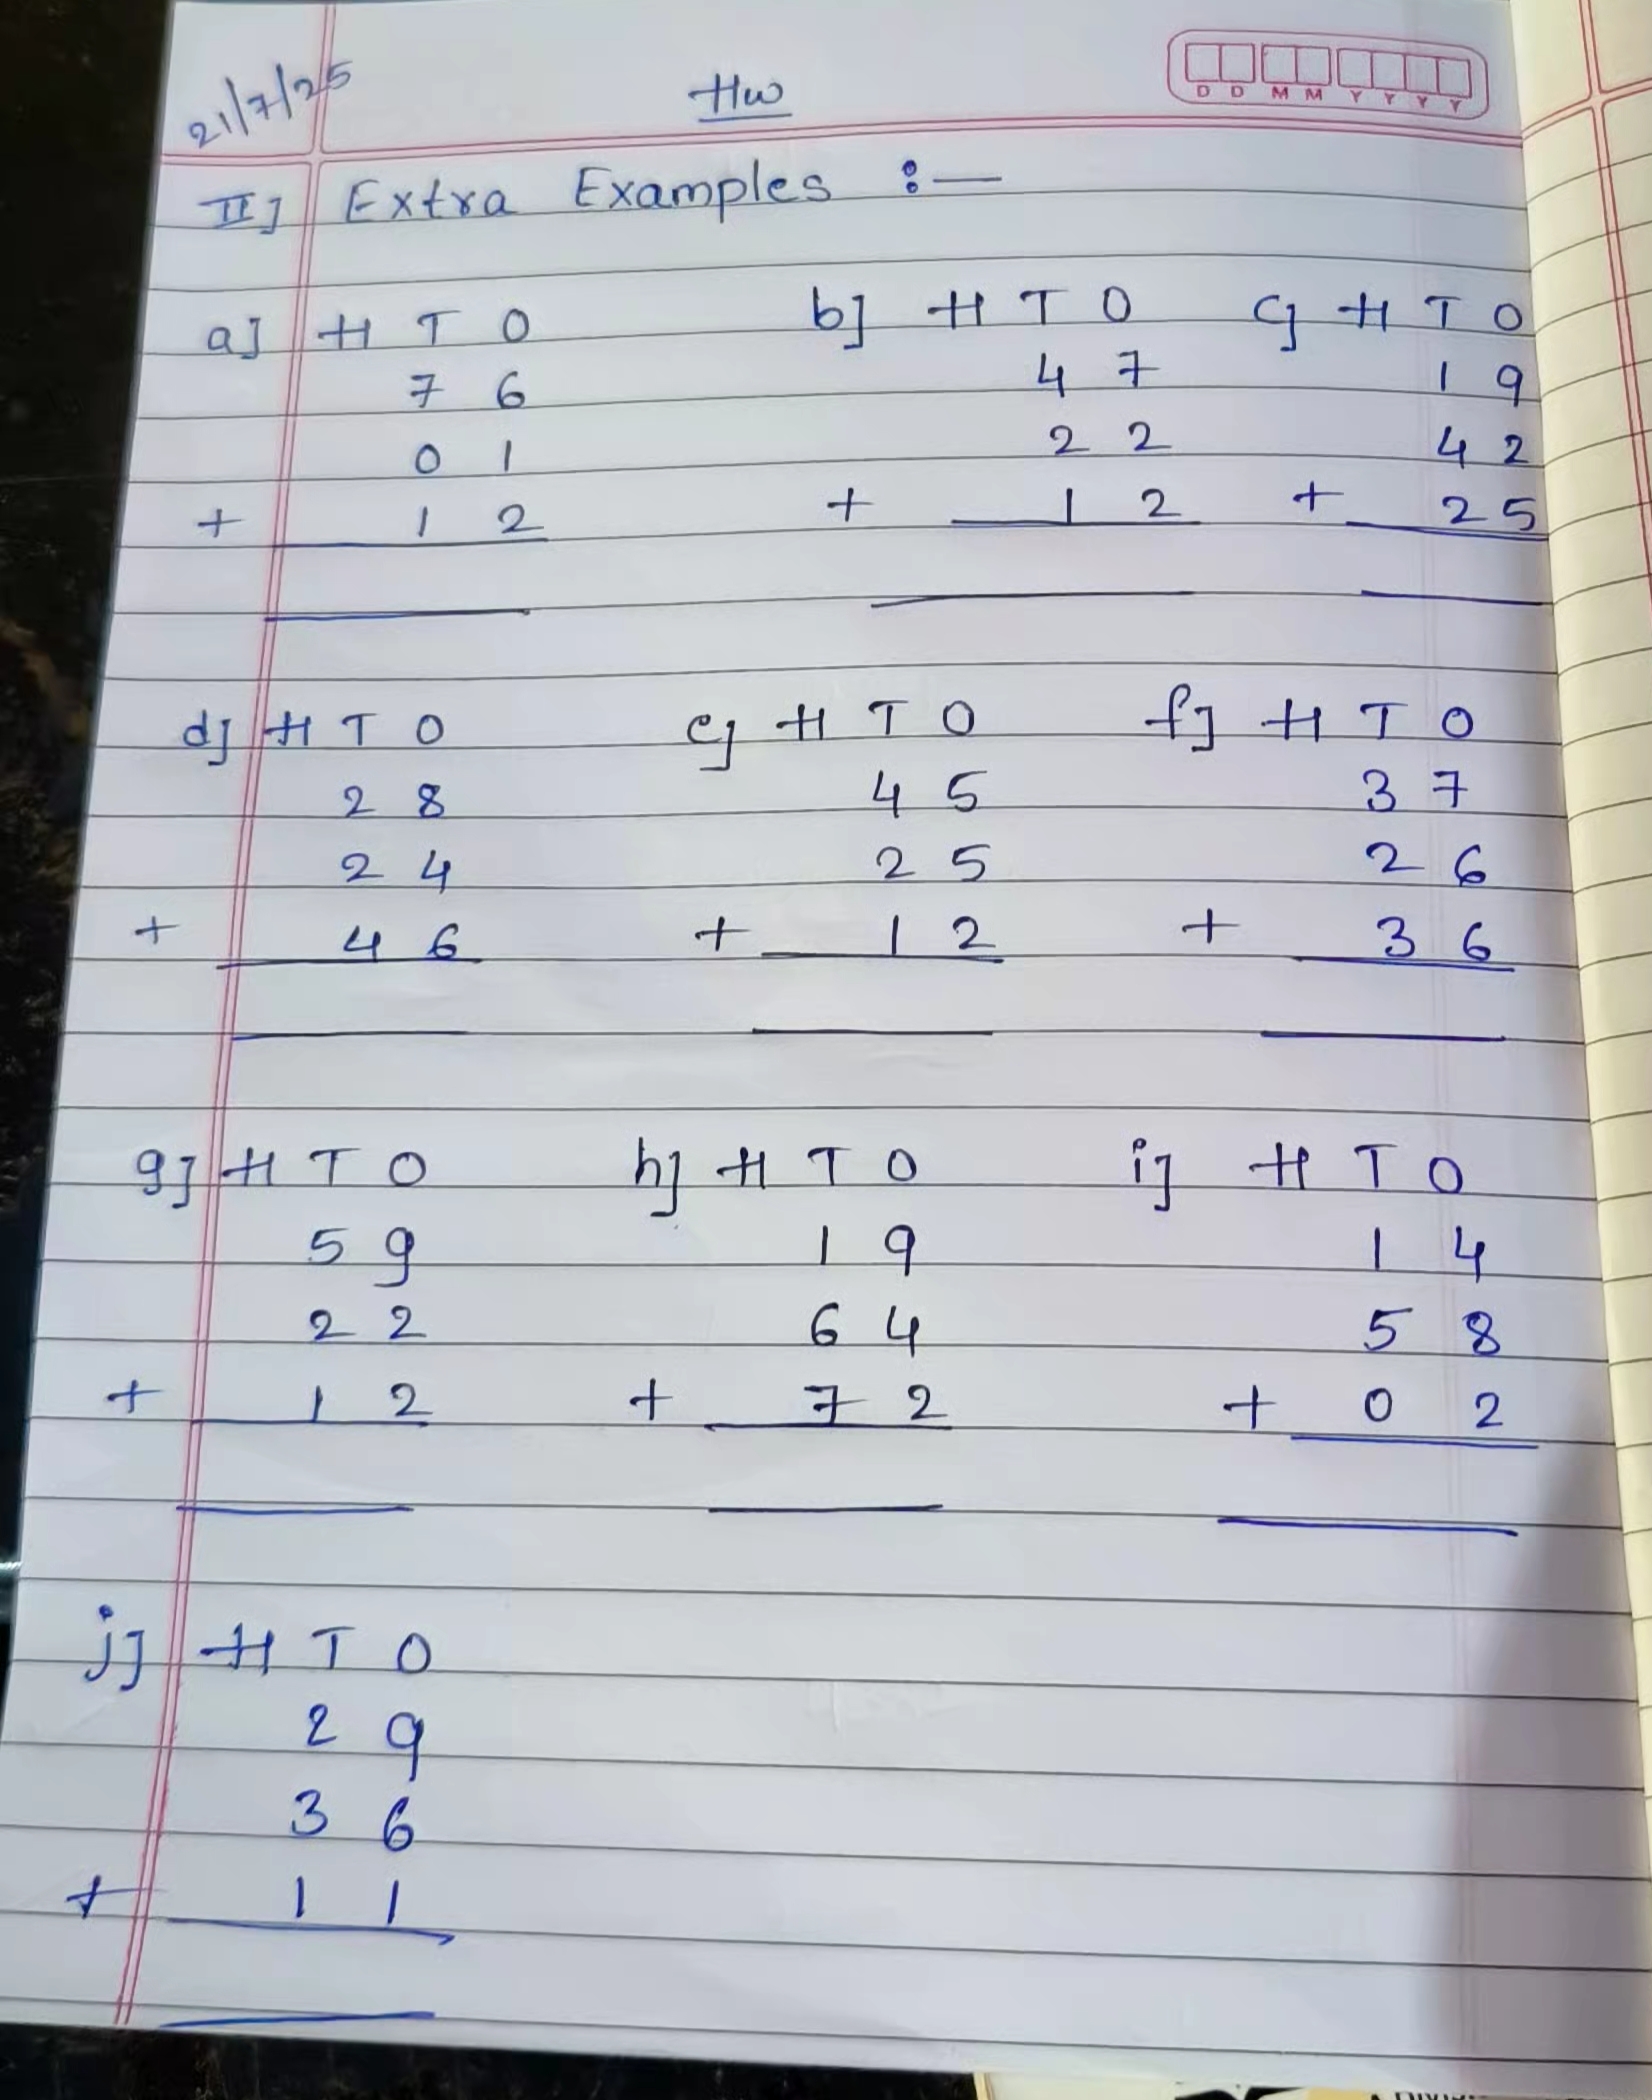 21/7/25
Hw
D D M M Y Y Y Y
II] Extra Examples :—
a] H T O b] H T O c] H T O
7 6 4 7 1 9
0 1 2 2 4 2
+ 1 2 + 1 2 + 2 5
d] H T O e] H T O f] H T O
2 8 4 5 3 7
2 4 2 5 2 6
+ 4 6 + 1 2 + 3 6
g] H T O h] H T O i] H T O
5 9 1 9 1 4
2 2 6 4 5 8
+ 1 2 + 7 2 + 0 2
j] H T O
2 9
3 6
+ 1 1